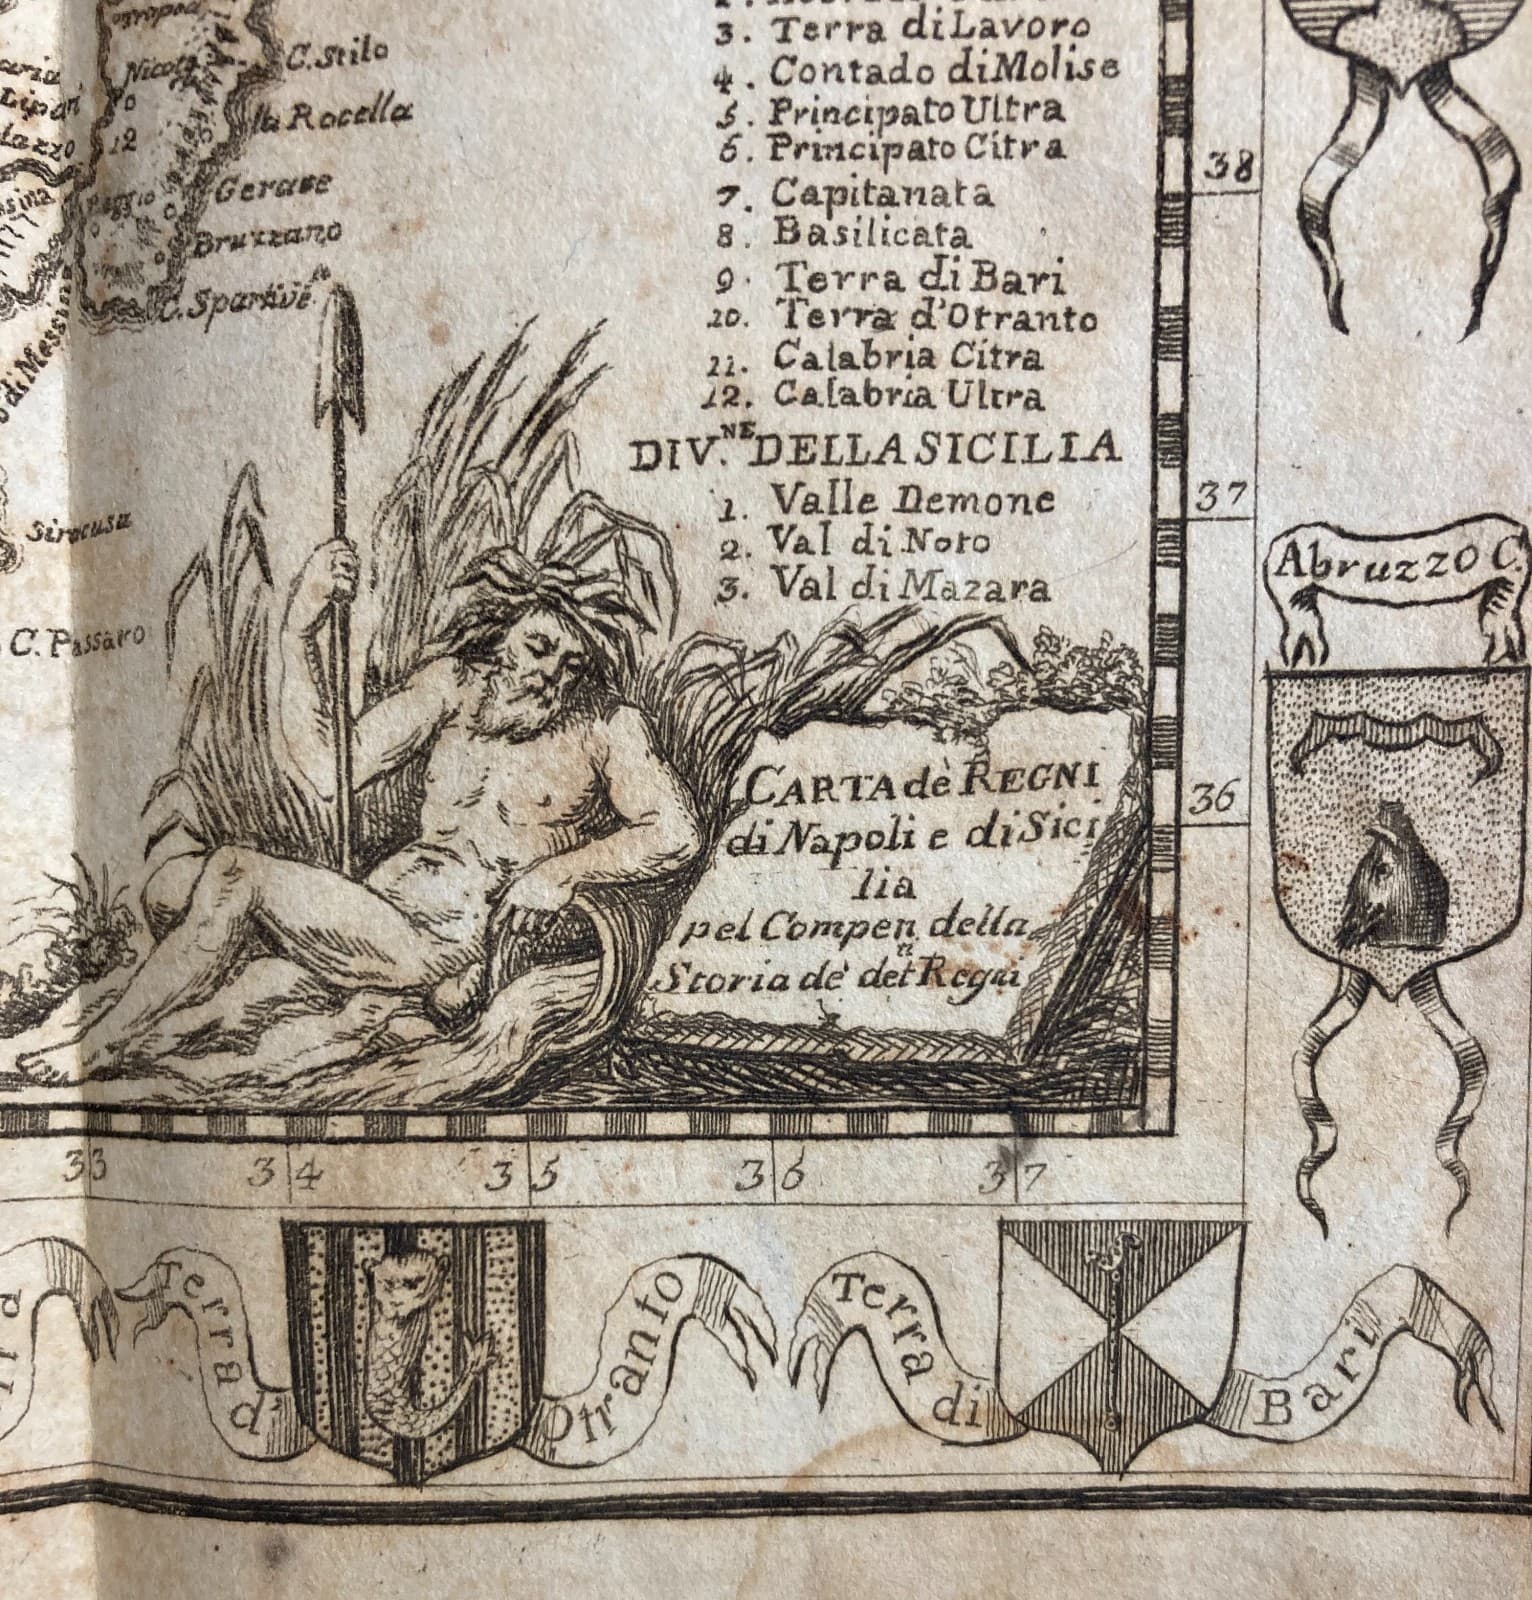 3. Terra di Lavoro
4. Contado di Molise
5. Principato Ultra
6. Principato Citra
7. Capitanata
8. Basilicata
9. Terra di Bari
10. Terra d'Otranto
11. Calabria Citra
12. Calabria Ultra
DIV.NE DELLA SICILIA
1. Valle Demone
2. Val di Noto
3. Val di Mazara
C. Stilo
la Rocella
Gerace
Bruzzano
C. Spartive
Nicot
12
Lipari
lazzo
di Messina
Siracusa
C. Passaro
CARTA dè REGNI
di Napoli e di Sici
lia
pel Compen della
Storia de' det.ti Regni
38
37
36
33
34
35
36
37
Abruzzo C.
Terra di Otranto
Terra di Bari